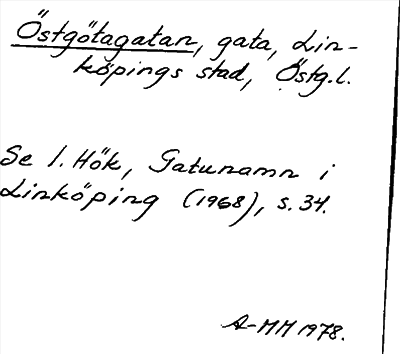 Östgötagatan, gata, Lin-
köpings stad, Östg.l.
Se I. Hök, Gatunamn i
Linköping (1968), s. 34.
A-MM 1978.